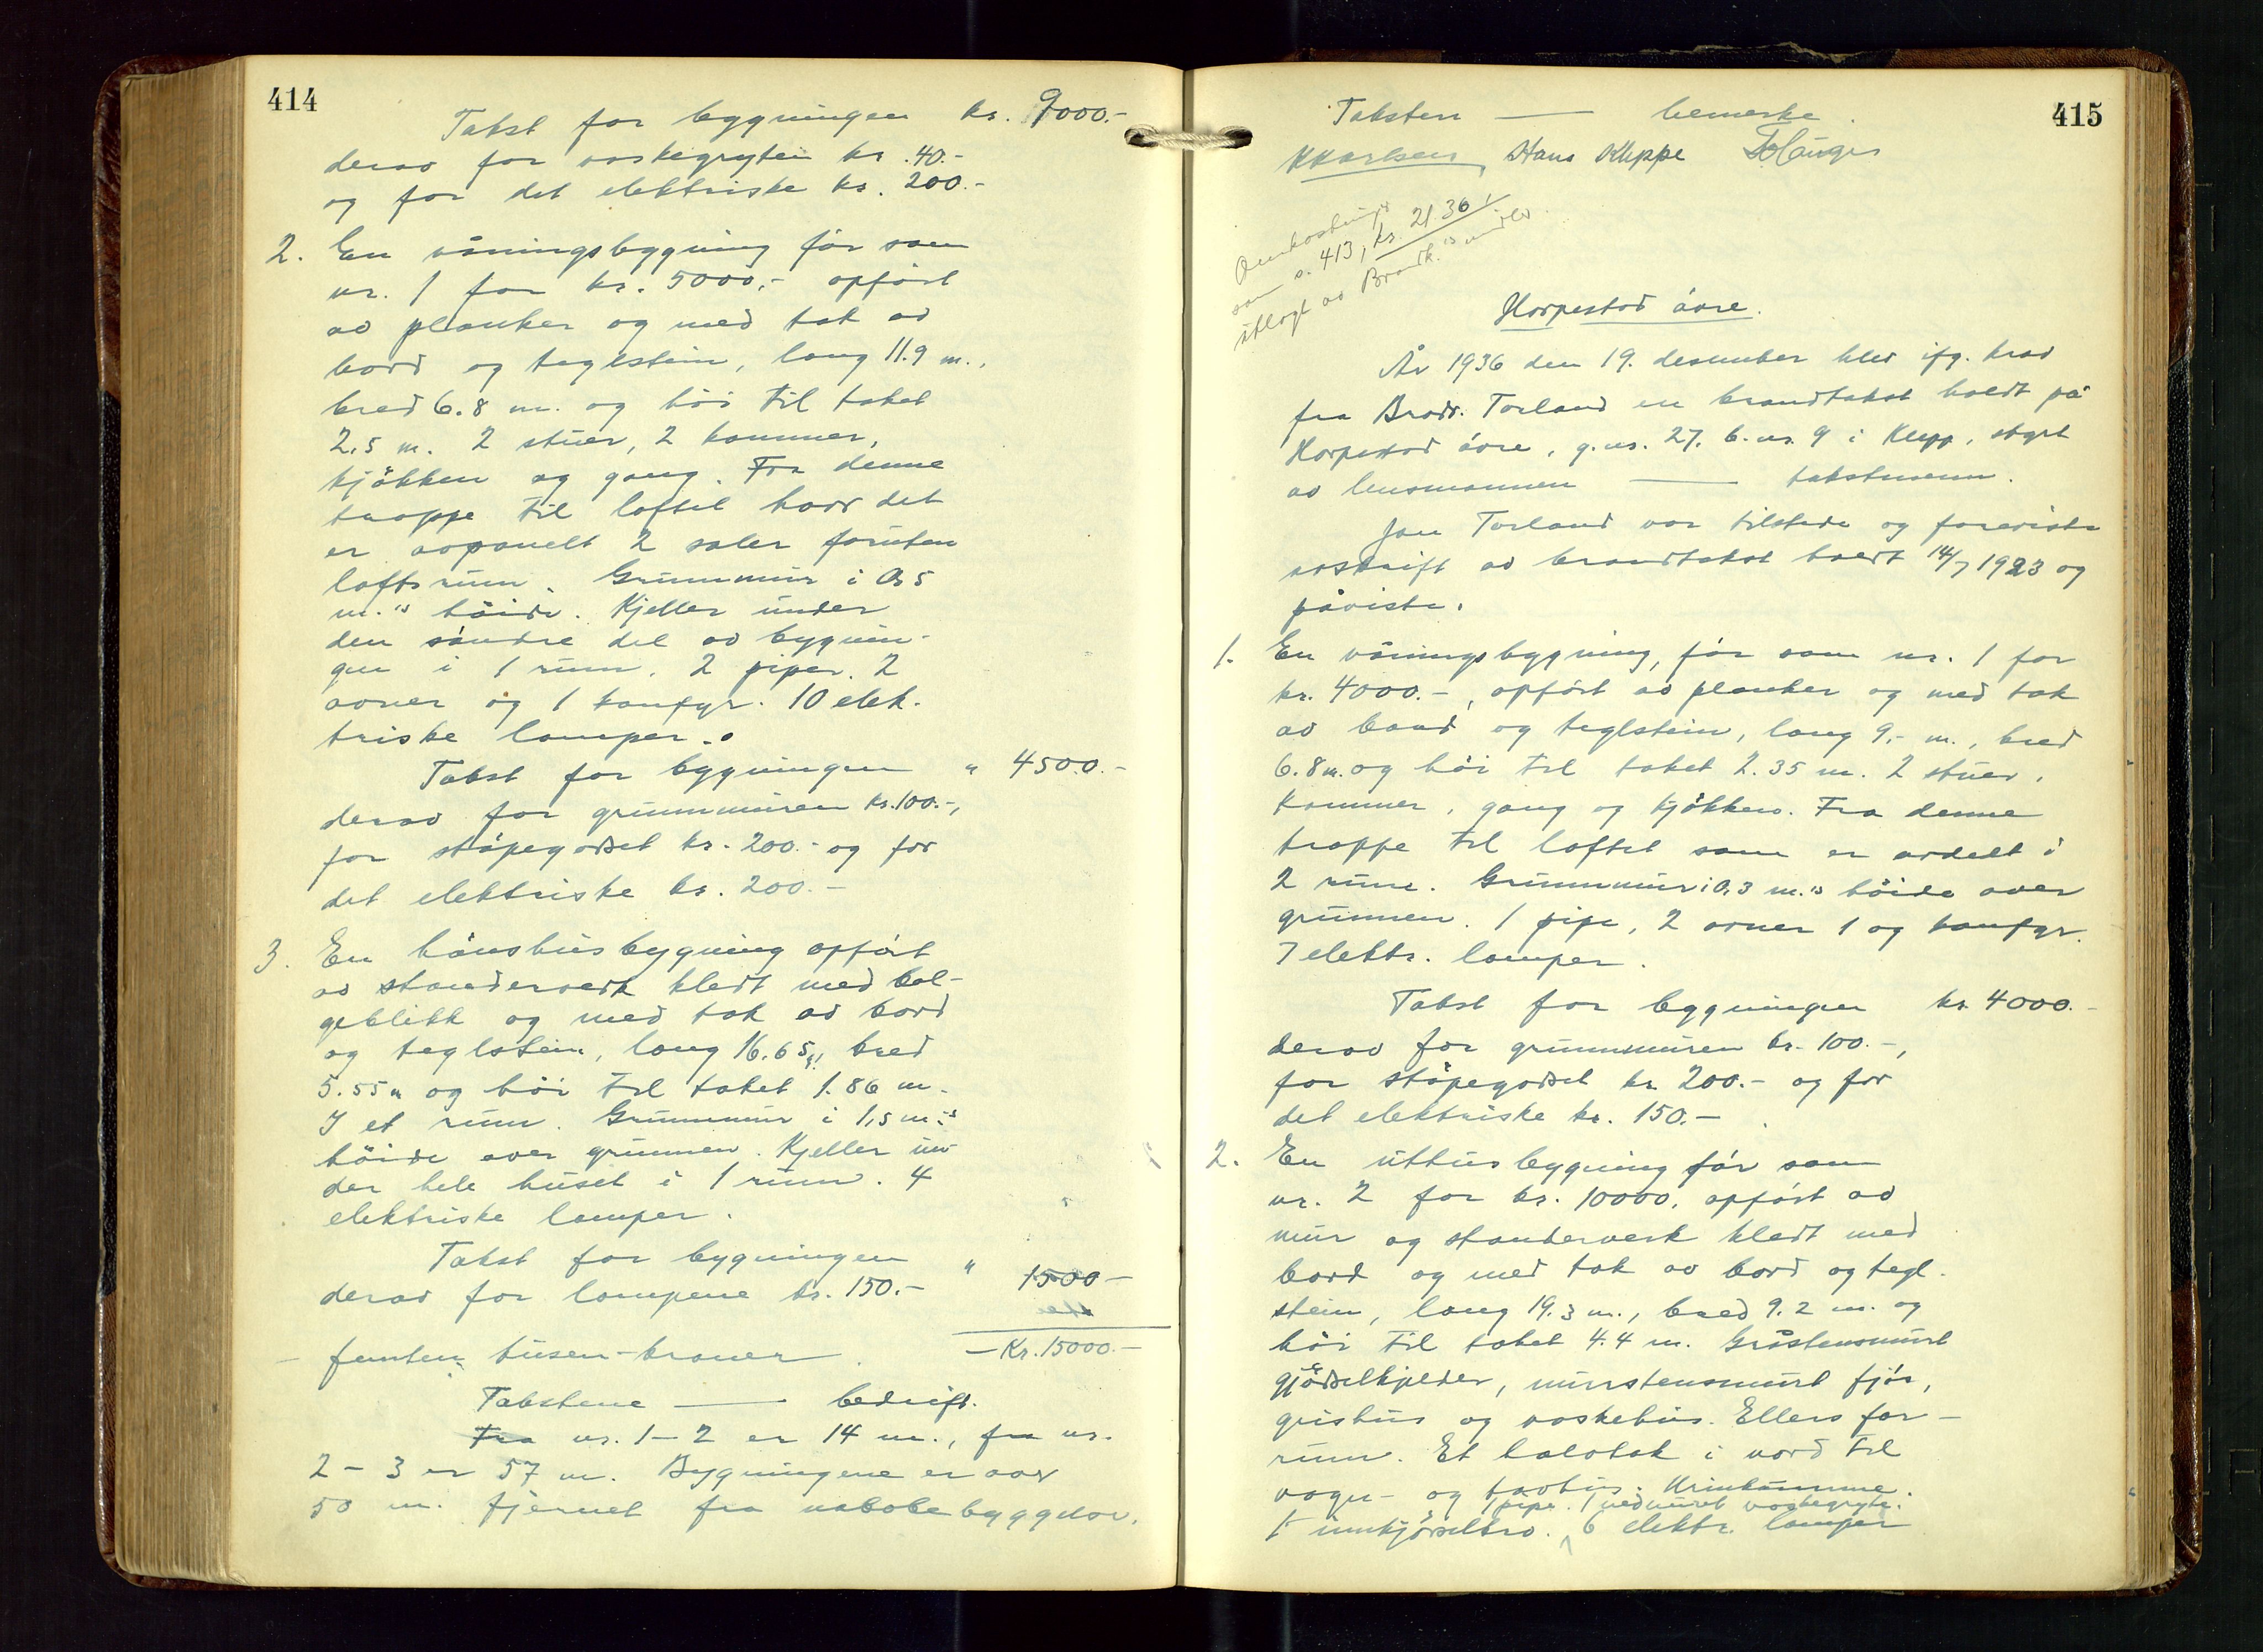 414
Takst for bygningen kr. 9000.-
derav for vaskegryten kr. 40.-
og for det elektriske kr. 200.-
2. En våningsbygning før som
nr. 1 for kr. 5000,- opført
av planker og med tak av
bord og teglstein, lang 11.9 m.,
bred 6.8 m. og höi til taket
2,5 m. 2 stuer, 2 kammer,
kjökken og gang. Fra denne
trappe til loftet hvor det
er avpanelt 2 saler foruten
loftsrum. Grunnmur i 0,5
m.'s höide. Kjeller under
den søndre del av bygnin-
gen i 1 rum. 2 piper. 2
ovner og 1 komfyr. 10 elek-
triske lamper.
Takst for bygningen " 4500.-
derav for grunnmuren kr. 100.-,
for støpegodset kr. 200.- og for
det elektriske kr. 200.-
3. En hönsehusbygning opført
av standerverk kledt med böl-
geblikk og med tak av bord
og teglstein, lang 16.65, bred
5.55 m og höi til taket 1.86 m.
I et rum. Grunnmur i 1,5 m.'s
höide over grunnen. Kjeller un-
der hele huset i 1 rum. 4
elektriske lamper.
Takst for bygningen " 1500-
derav for lampene kr. 150.-
- femten tusen-kroner. - Kr. 15000.-
Takstene — bedrift.
Fra nr. 1-2 er 14 m., fra nr.
2-3 er 57 m. Bygningene er over
50 m. fjernet fra nabobebyggelse.
415
Taksten — bemerke.
K Karlsen, Hans Kleppe
Omkostninger
som s. 413, kr. 21 30
utlagt av Brandk.'s midler.
Horpestad övre.
År 1936 den 19. desember blev ifg. krav
fra Brødr. Torland en brandtakst holdt på
Horpestad övre, g.nr. 27, b.nr. 9 i Klepp, styrt
av lensmannen — takstmenn.
Jon Torland var tilstede og foreviste
avskrift av brandtakst holdt 14/7 1923 og
påviste.
1. En våningsbygning, før som nr. 1 for
kr. 4000.-, opført av planker og med tak
av bord og teglstein, lang 9,- m., bred
6.8 m. og höi til taket 2.35 m. 2 stuer,
kammer, gang og kjökken. Fra denne
trappe til loftet som er avdelt i
2 rum. Grunnmur i 0,3 m.'s höide over
grunnen. 1 pipe, 2 ovner 1 og komfyr.
7 elektr. lamper.
Takst for bygningen kr. 4000.-
derav for grunnmuren kr. 100.-,
for støpegodset kr. 200.- og for
det elektriske kr. 150.-
2. En uthusbygning før som
nr. 2 for kr. 10000, opført av
mur og standerverk kledt med
bord og med tak av bord og tegl-
stein, lang 19.3 m., bred 9.2 m. og
höi til taket 4.4 m. Gråstensmurt
gjödselkjelder, murstensmurt fjös,
grishus og vaskehus. Ellers for-
rum. Et halvtak i nord til
vogn- og torvhus. Urinkumme.
1 pipe. 1 nedmuret vaskegryte.
1 innkjörselbro. 6 elektr. lamper